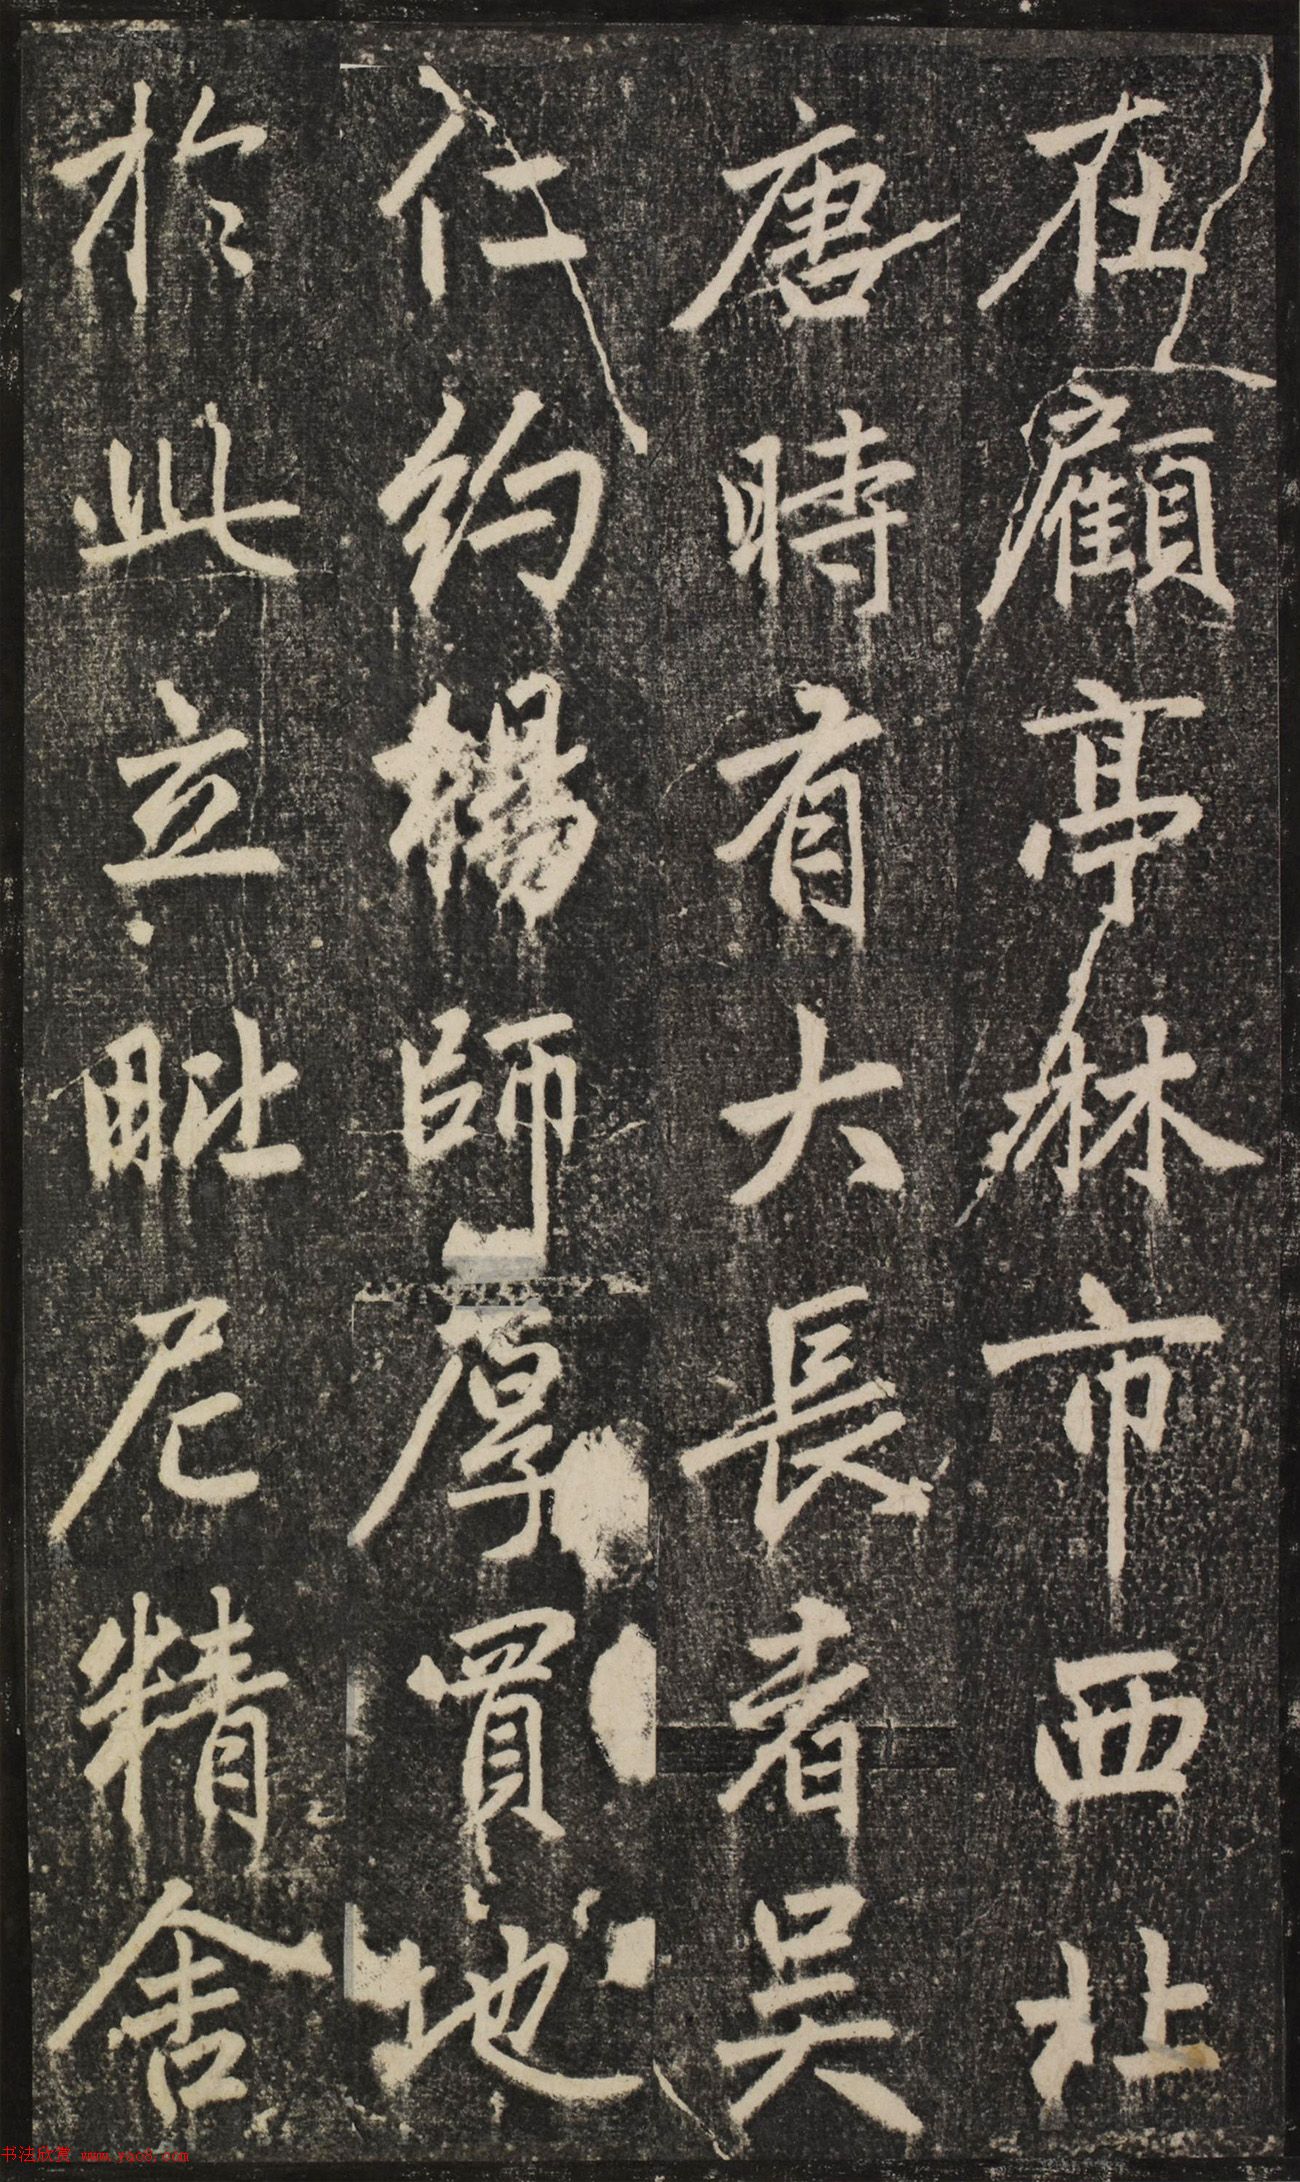 在顧亭林市西北
唐時有大長者吳
仁約楊師厚買地
於此立毗尼精舍
书法欣赏 www.yac8.com